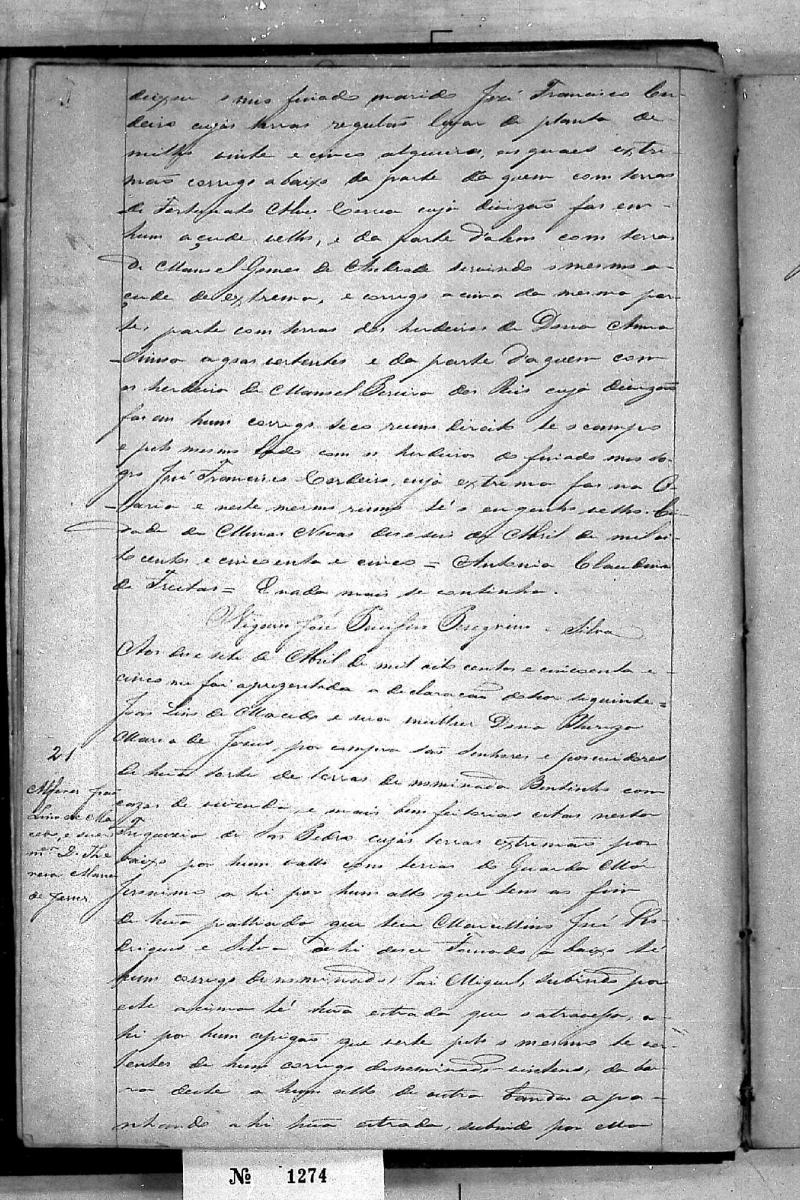 deixou o meo finado marido José Francisco Cor-
deiro cujas terras regulão lugar de planta de
milho vinte e cinco alqueires, as quaes extre-
mão corrego abaixo da parte da quem com terras
de Fortunato Alves Correa cuja divizão faz em
hum açude velho, e da parte d'alem com terras
de Manoel Gomes de Andrade servindo o mesmo a-
çude de extrema, e corrego acima da mesma par-
te, parte com terras dos herdeiros de Dona Anna
agoas vertentes e da parte daquem com
os herdeiros de Manoel Pereira dos Reis cuja divizão
faz em hum corrego seco rumo direito té o campo
e pelo mesmo lado com os herdeiros do finado meo so-
gro José Francisco Cordeiro, cuja extrema faz na O-
laria e neste mesmo rumo té o engenho velho. Ci-
dade de Minas Novas deseseis de Abril de mil oi-
to centos e cincoenta e cinco = Antonia Claudina
de Freitas = E nada mais se continha.
Vigario José Pacifico Peregrino e Silva
Aos desesete de Abril de mil oito centos e cincoenta e
cinco me foi aprezentada a declaração do theor seguinte =
João Lino de Macedo e sua mulher Dona Thereza
Maria de Jesus, por compra são senhores e possuidores
de huã sorte de terras denominada Bentinho com
cazas de vivenda, e mais bemfeitorias citas nesta
Freguezia de São Pedro cujas terras extremão por
baixo por hum vallo com terras do Guarda Mór
Jeronimo a hi por hum alto que tem as fim
de huã palhada que teve Marcellino José Ro-
drigues e Silva dahi desce tomando a baixo té
hum corrego denominado Pai Miguel, subindo por
este acima té huã estrada que o atravessa, a-
hi por hum espigão que verte pelo o mesmo té ver-
tentes de hum corrego denominado da bar-
ra deste a hum alto de outra banda apa-
nhando a hi huã estrada, subindo por
21
Alferes João
Lino de Ma-
cedo, e sua
mer. D. The-
reza Maria
de Jesus
№ 1274